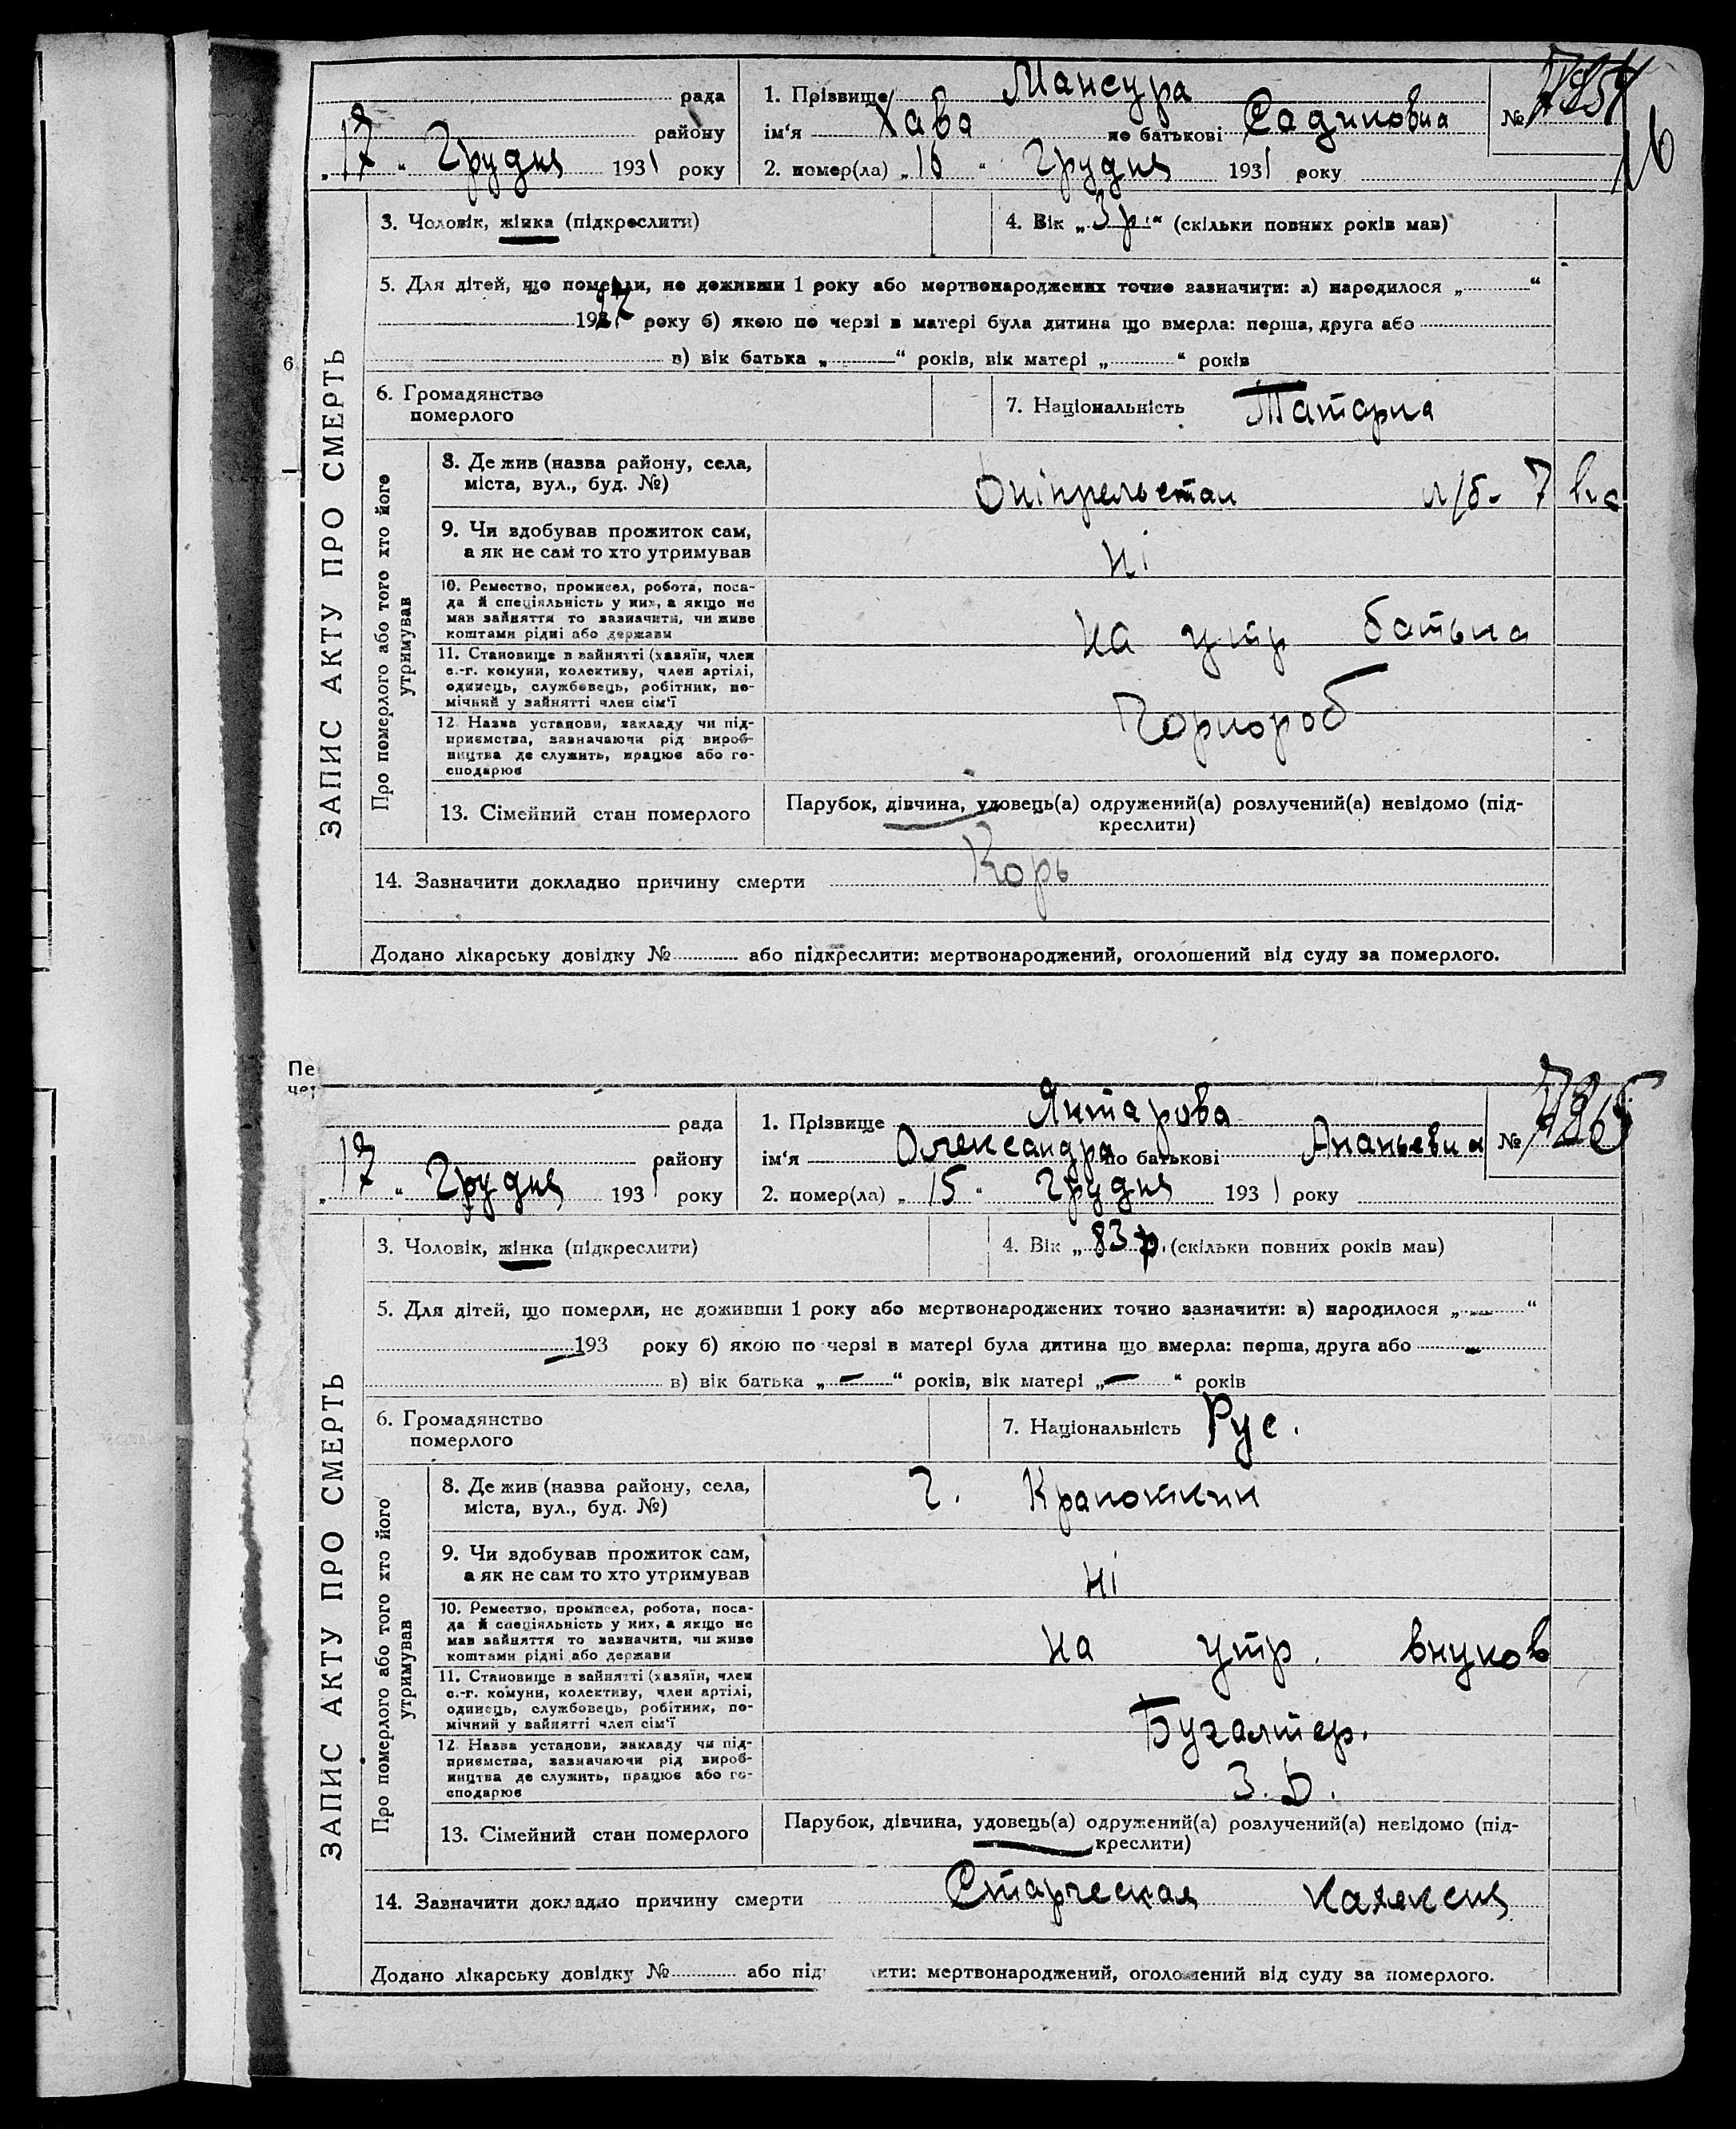 рада
1. Прізвище Мансура
№
району
ім'я Хава по батькові Садиковна
„17“ Грудня 1931 року
2. помер(ла) „16“ Грудня 1931 року
16
ЗАПИС АКТУ ПРО СМЕРТЬ
3. Чоловік, жінка (підкреслити)
4. Вік „3 р.“ (скільки повних років мав)
5. Для дітей, що померли, не доживши 1 року або мертвонароджених точно зазначити: а) народилося „ “
року б) якою по черзі в матері була дитина що вмерла: перша, друга або
в) вік батька „ “ років, вік матері „ “ років
6
6. Громадянство
померлого
7. Національність Татарка
Про померлого або того хто його
утримував
8. Де жив (назва району, села,
міста, вул., буд. №)
Дніпрельстан л/б- 7
9. Чи вдобував прожиток сам,
а як не сам то хто утримував
Ні
10. Ремество, промисел, робота, поса-
да й спеціяльність у них, а якщо не
мав зайняття то зазначити, чи живе
коштами рідні або держави
на утр батька
11. Становище в зайнятті (хазяїн, член
с.-г. комуни, колективу, член артілі,
одинець, службовець, робітник, по-
мічний у зайнятті член сім'ї
Чорнороб
12. Назва установи, закладу чи під-
приємства, зазначаючи рід вироб-
ництва де служить, працює або го-
сподарює
13. Сімейний стан померлого
Парубок, дівчина, удовець(а) одружений(а) розлучений(а) невідомо (під-
креслити)
14. Зазначити докладно причину смерти Корь
Додано лікарську довідку № або підкреслити: мертвонароджений, оголошений від суду за померлого.
Пе
чер
рада
1. Прізвище Янтарова
№
району
ім'я Олександра по батькові Ананьевна
„17“ Грудня 1931 року
2. помер(ла) „15“ Грудня 1931 року
ЗАПИС АКТУ ПРО СМЕРТЬ
3. Чоловік, жінка (підкреслити)
4. Вік „83 р. (скільки повних років мав)
5. Для дітей, що померли, не доживши 1 року або мертвонароджених точно зазначити: а) народилося „—“
193 року б) якою по черзі в матері була дитина що вмерла: перша, друга або —
в) вік батька „—“ років, вік матері „—“ років
6. Громадянство
померлого
7. Національність Рус.
Про померлого або того хто його
утримував
8. Де жив (назва району, села,
міста, вул., буд. №)
Кропоткин
9. Чи вдобував прожиток сам,
а як не сам то хто утримував
Ні
10. Ремество, промисел, робота, поса-
да й спеціяльність у них, а якщо не
мав зайняття то зазначити, чи живе
коштами рідні або держави
на утр. внуков
11. Становище в зайнятті (хазяїн, член
с.-г. комуни, колективу, член артілі,
одинець, службовець, робітник, по-
мічний у зайнятті член сім'ї
Бугалтер.
12. Назва установи, закладу чи під-
приємства, зазначаючи рід вироб-
ництва де служить, працює або го-
сподарює
13. Сімейний стан померлого
Парубок, дівчина, удовець(а) одружений(а) розлучений(а) невідомо (під-
креслити)
14. Зазначити докладно причину смерти Старческая кахексия
Додано лікарську довідку № або під ити: мертвонароджений, оголошений від суду за померлого.